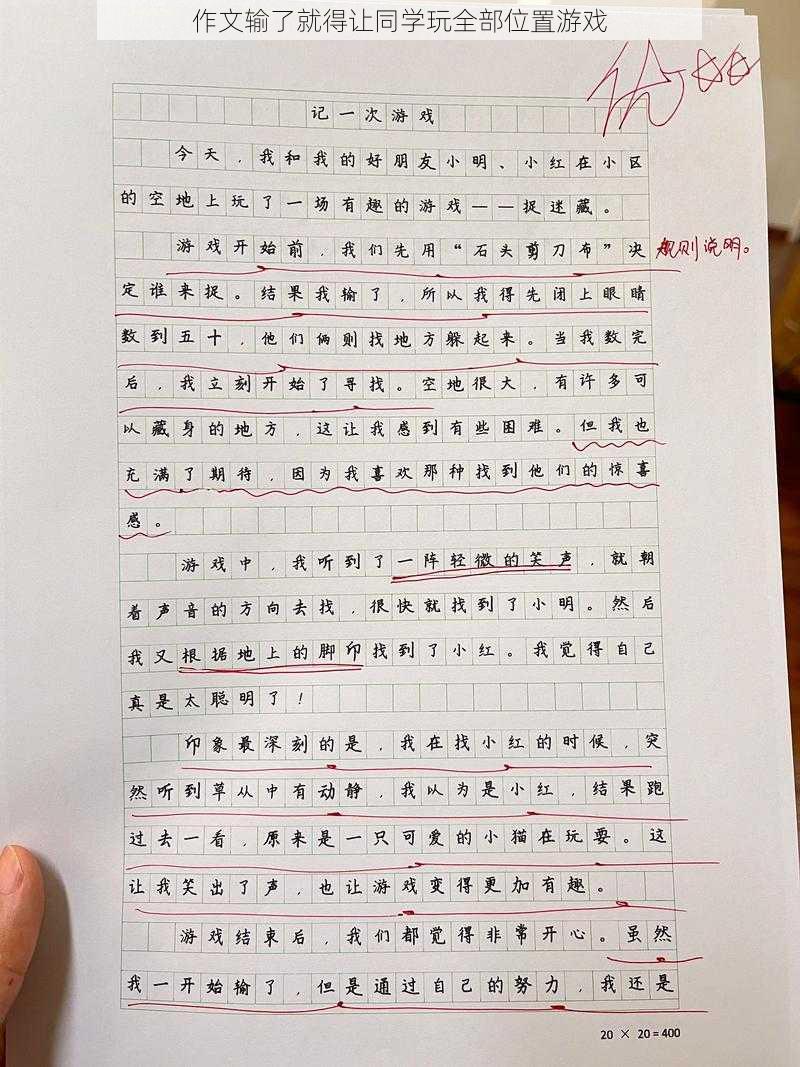 作文输了就得让同学玩全部位置游戏
优
记一次游戏
今天，我和我的好朋友小明、小红在小区
的空地上玩了一场有趣的游戏——捉迷藏。
游戏开始前，我们先用“石头剪刀布”决
规则说明。
定谁来捉。结果我输了，所以我得先闭上眼睛
数到五十，他们俩则找地方躲起来。当我数完
后，我立刻开始了寻找。空地很大，有许多可
以藏身的地方，这让我感到有些困难。但我也
充满了期待，因为我喜欢那种找到他们的惊喜
感。
游戏中，我听到了一阵轻微的笑声，就朝
着声音的方向去找，很快就找到了小明。然后
我又根据地上的脚印找到了小红。我觉得自己
真是太聪明了！
印象最深刻的是，我在找小红的时候，突
然听到草丛中有动静，我以为是小红，结果跑
过去一看，原来是一只可爱的小猫在玩耍。这
让我笑出了声，也让游戏变得更加有趣。
游戏结束后，我们都觉得非常开心。虽然
我一开始输了，但是通过自己的努力，我还是
20 × 20 = 400